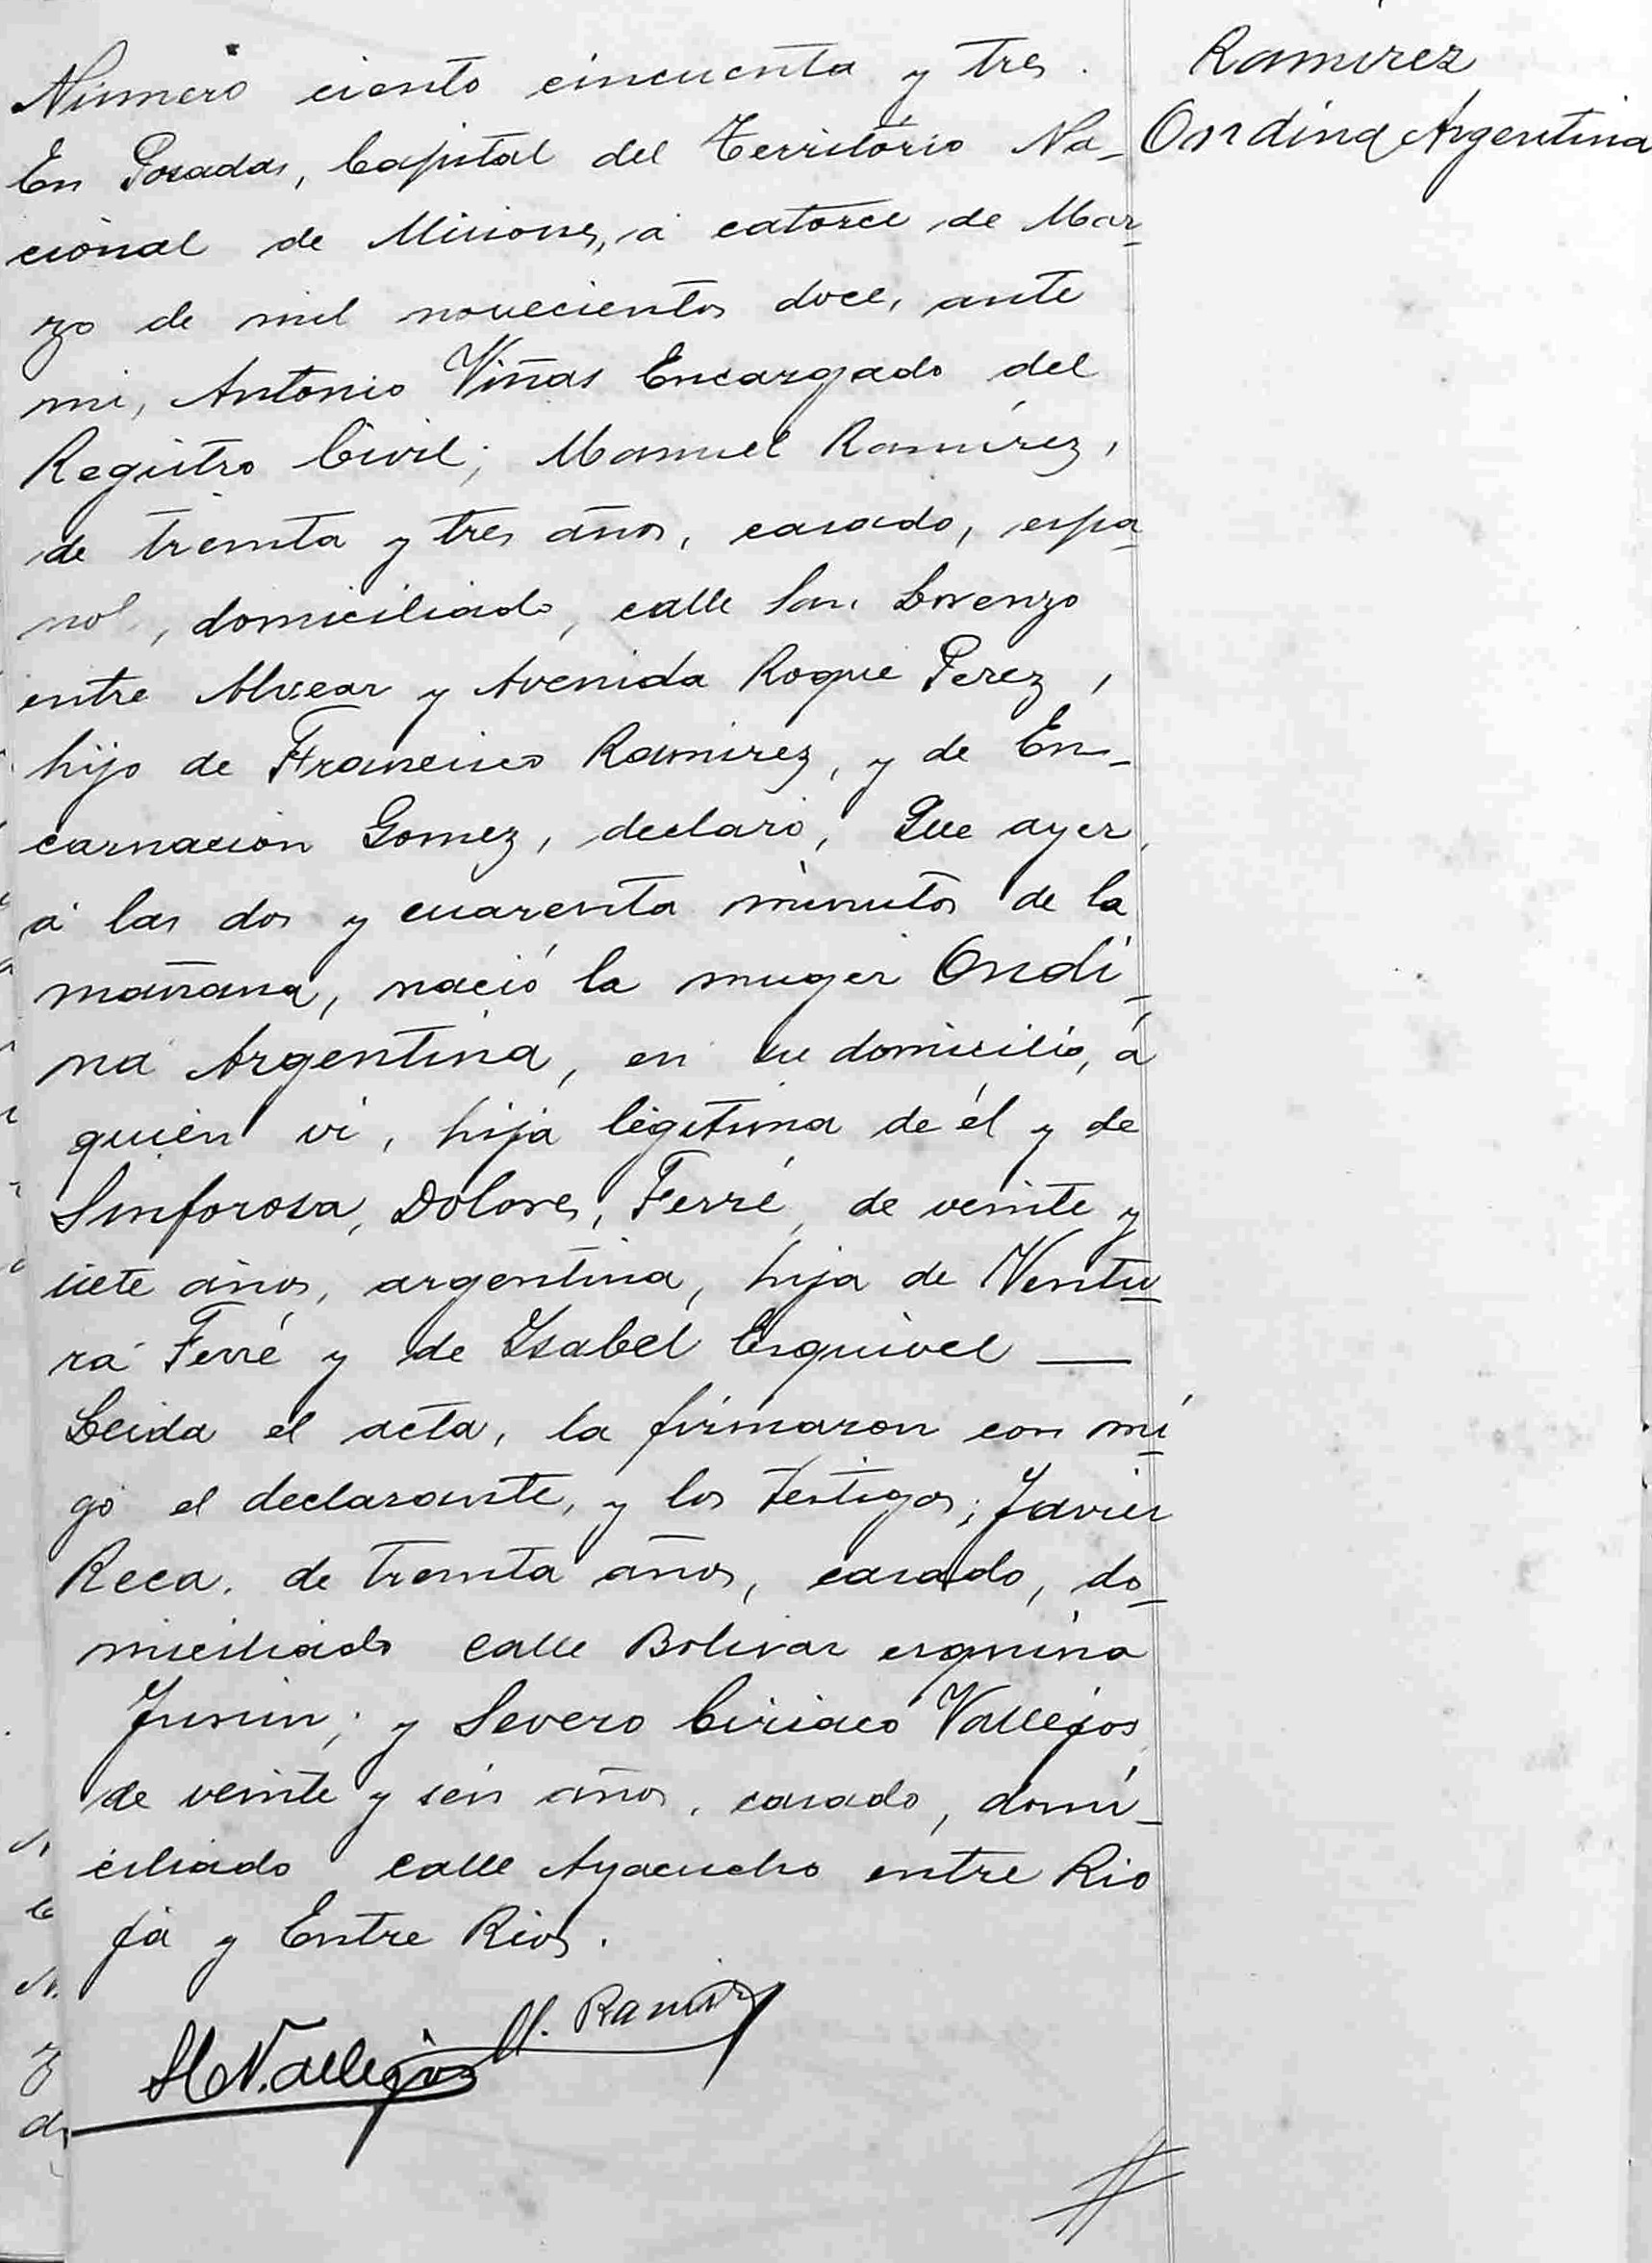 Número ciento cincuenta y tres.
En Posadas, Capital del Territorio Na-
cional de Misiones, á catorce de Mar-
zo de mil novecientos doce, ante
mi, Antonio Viñas Encargado del
Registro Civil; Manuel Ramírez,
de treinta y tres años, casado, espa-
nol, domiciliado, calle San Lorenzo
entre Alvear y Avenida Roque Perez,
hijo de Francisco Ramirez, y de En-
carnación Gomez, declaró, Que ayer,
á las dos y cuarenta minutos de la
mañana, nació la muger Ondi-
na Argentina, en su domicilio, á
quien vi, hija legitima de él y de
Sinforosa, Dolores, Ferré, de veinte y
siete años, argentina, hija de Ventu-
ra Ferré y de Ysabel Esquivel —
Leida el acta, la firmaron con mi-
go el declarante, y los testigos; Javier
Reca. de treinta años, casado, do-
miciliado calle Bolivar esquina
Junin; y Severo Ciriaco Vallejos,
de veinte y seis años, casado, domi-
ciliado calle Ayacucho entre Rio
ja y Entre Rios.
Ramirez
Ondina Argentina
M. Ramirez
Vallejos